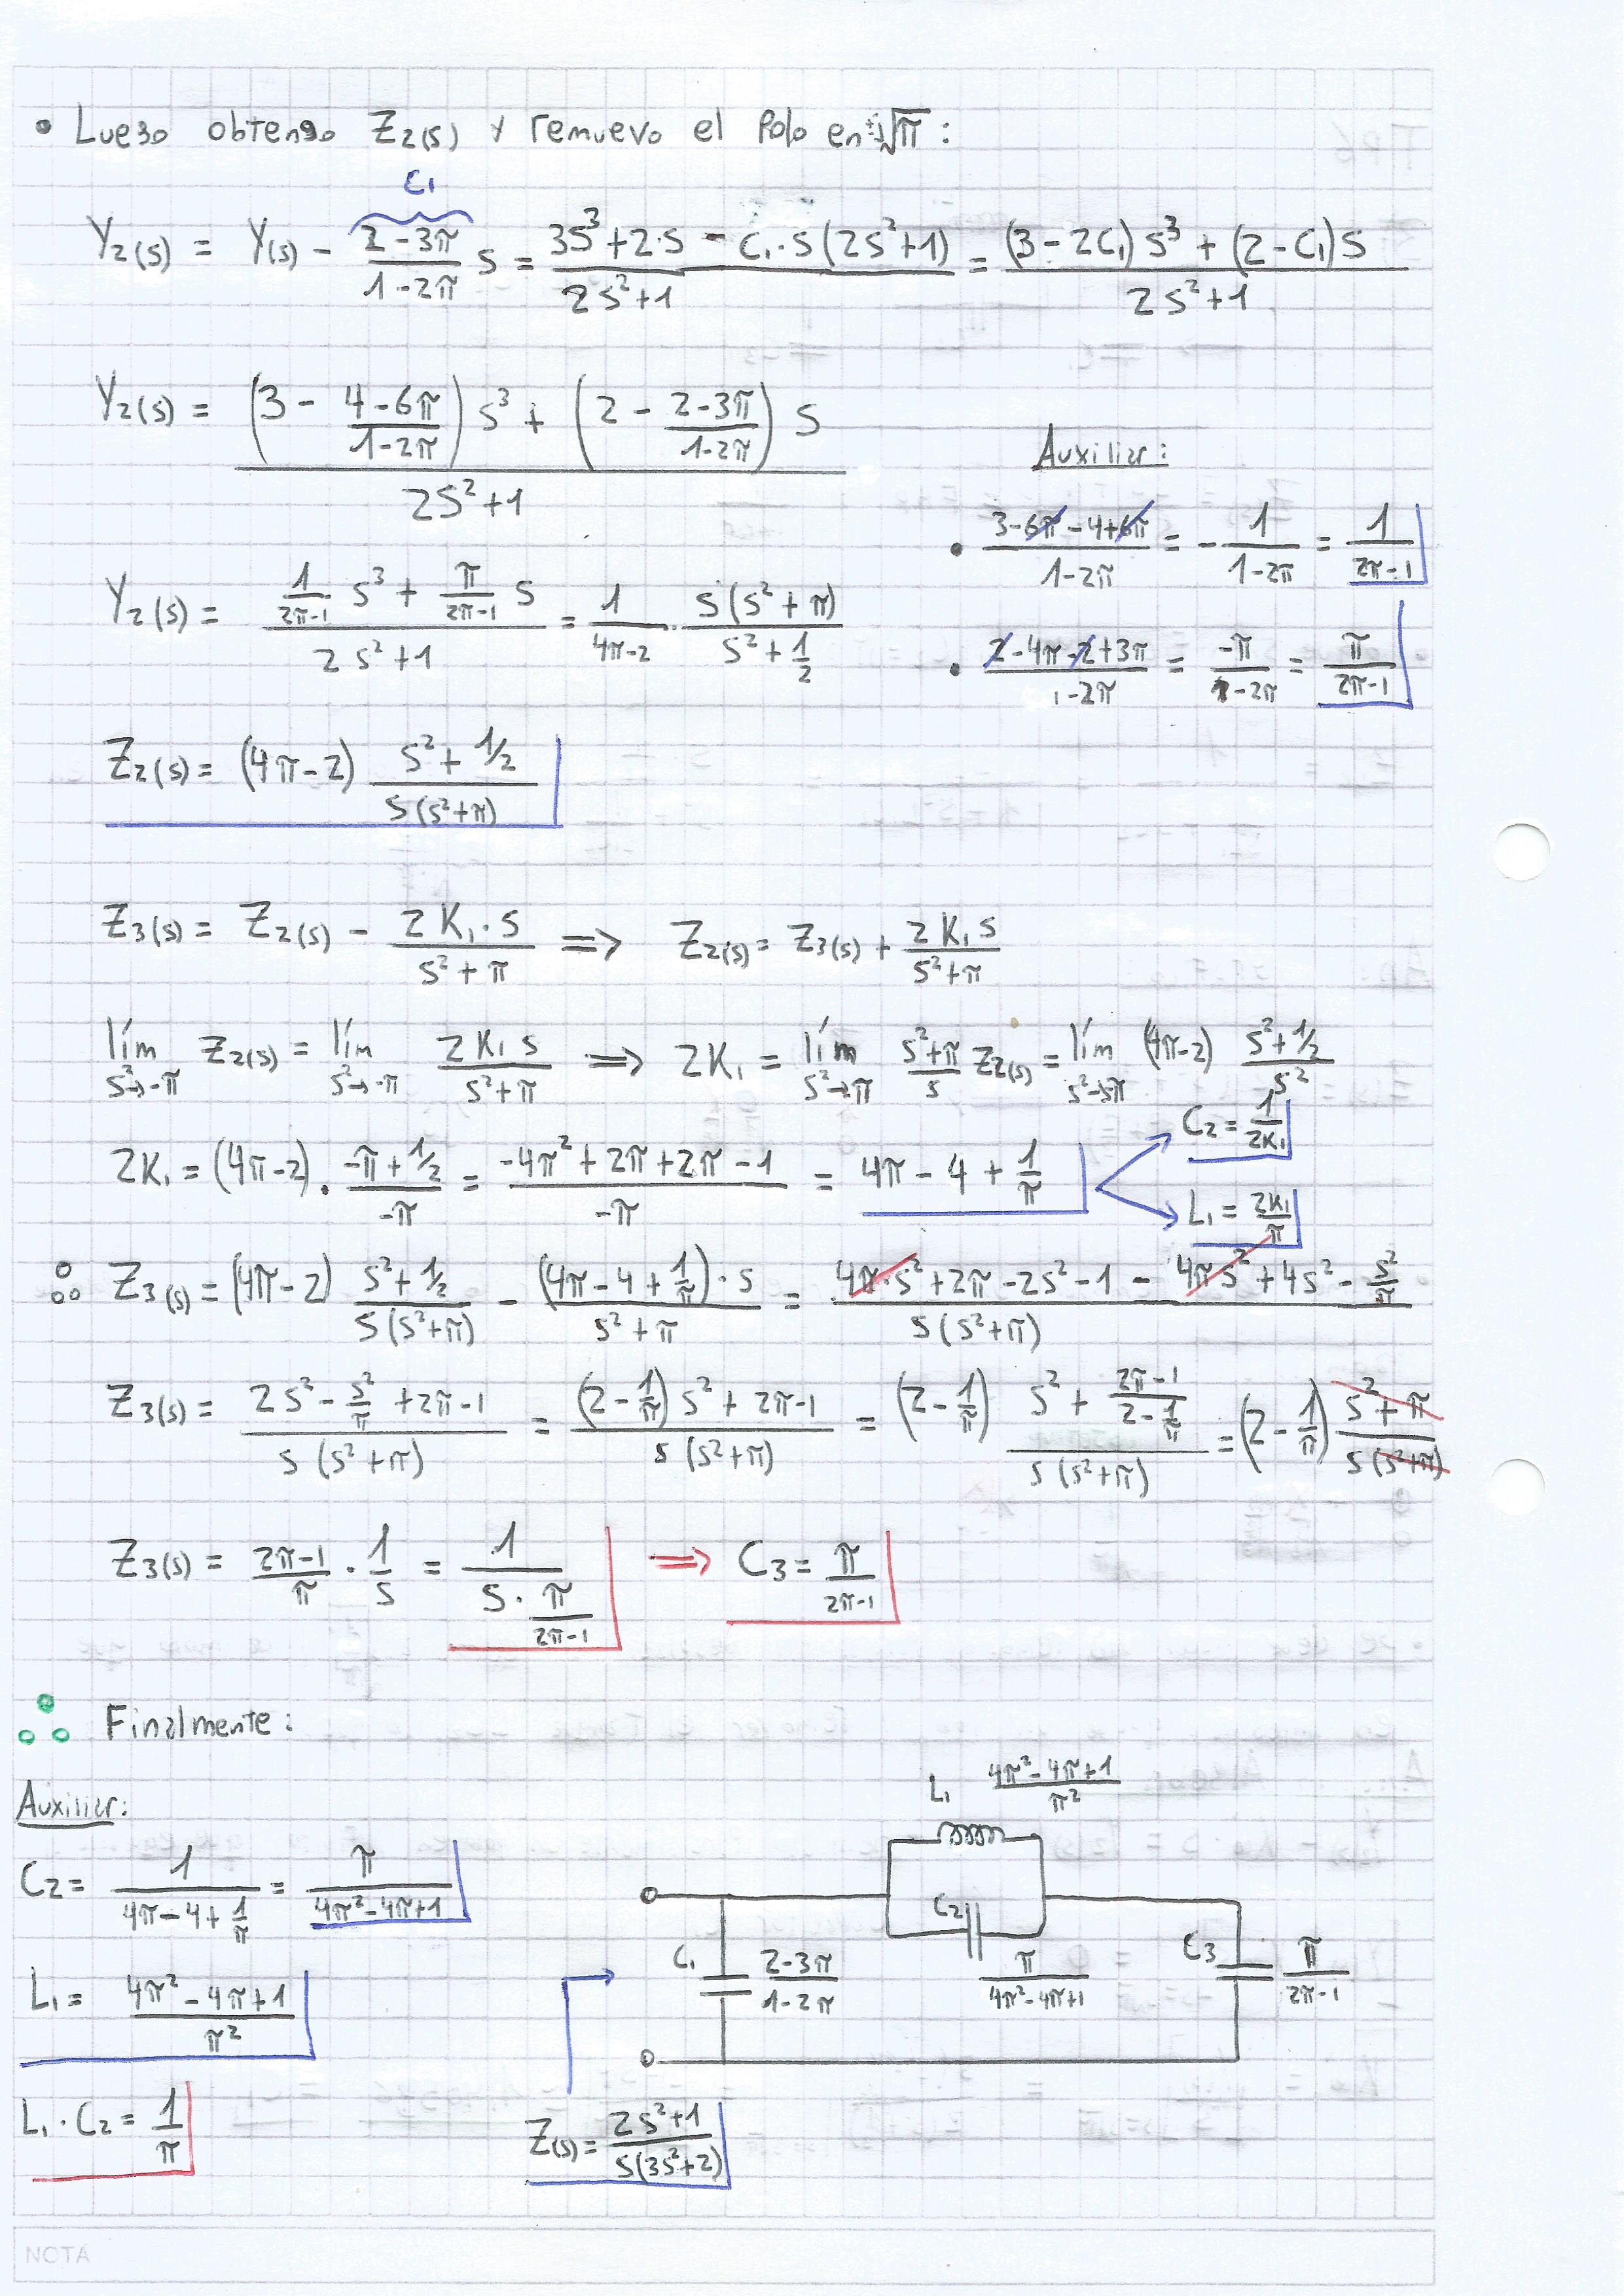 • Luego obtengo Z2(s) y remuevo el Polo en ±j√π :
C1
Y2(s) = Y(s) - (2-3π)/(1-2π) s = (3s³+2·s - C1·s(2s²+1))/(2s²+1) = ((3-2C1)s³ + (2-C1)s)/(2s²+1)
Y2(s) = ((3 - (4-6π)/(1-2π)) s³ + (2 - (2-3π)/(1-2π)) s)/(2s²+1)
Auxiliar:
• (3-6π-4+6π)/(1-2π) = - 1/(1-2π) = 1/(2π-1)
Y2(s) = (1/(2π-1) s³ + π/(2π-1) s)/(2s²+1) = 1/(4π-2) · s(s²+π)/(s²+1/2)
• (2-4π-2+3π)/(1-2π) = -π/(1-2π) = π/(2π-1)
Z2(s) = (4π-2) (s²+1/2)/(s(s²+π))
Z3(s) = Z2(s) - (2K1·s)/(s²+π) ⟹ Z2(s) = Z3(s) + (2K1s)/(s²+π)
lím s²→-π Z2(s) = lím s²→-π (2K1s)/(s²+π) ⟹ 2K1 = lím s²→-π (s²+π)/s Z2(s) = lím s²→-π (4π-2) (s²+1/2)/s²
C2 = 1/(2K1)
2K1 = (4π-2) · (-π+1/2)/(-π) = (-4π²+2π+2π-1)/(-π) = 4π - 4 + 1/π
L1 = 2K1/π
∴ Z3(s) = (4π-2) (s²+1/2)/(s(s²+π)) - ((4π-4+1/π)·s)/(s²+π) = (4π·s²+2π-2s²-1 - 4πs²+4s²-s²/π)/(s(s²+π))
Z3(s) = (2s² - s²/π + 2π-1)/(s(s²+π)) = ((2-1/π)s²+2π-1)/(s(s²+π)) = (2-1/π) (s² + (2π-1)/(2-1/π))/(s(s²+π)) = (2-1/π) (s²+π)/(s(s²+π))
Z3(s) = (2π-1)/π · 1/s = 1/(s · π/(2π-1)) ⟹ C3 = π/(2π-1)
∴ Finalmente:
Auxiliar:
C2 = 1/(4π-4+1/π) = π/(4π²-4π+1)
L1 = (4π²-4π+1)/π²
L1·C2 = 1/π
L1 (4π²-4π+1)/π²
C2 π/(4π²-4π+1)
C1 (2-3π)/(1-2π)
C3 π/(2π-1)
Z(s) = (2s²+1)/(s(3s²+2))
NOTA